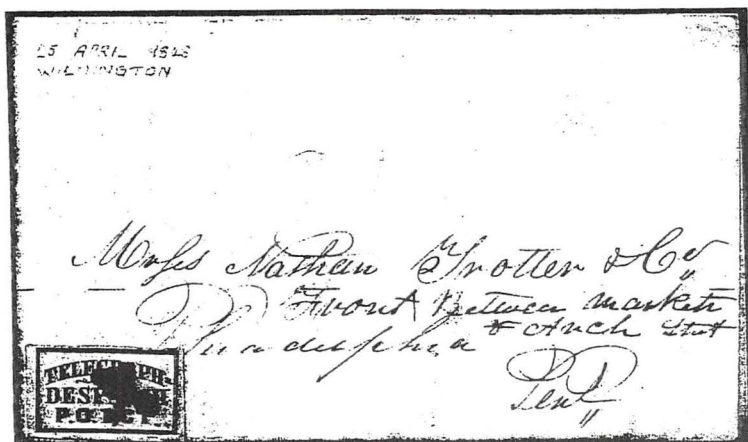 APRIL
WILMINGTON
Messrs Nathan Trotter & Co
Front Between Market
& Arch Stret
Philadelphia
Pen
TELEGRAPH
DEST
P.O.